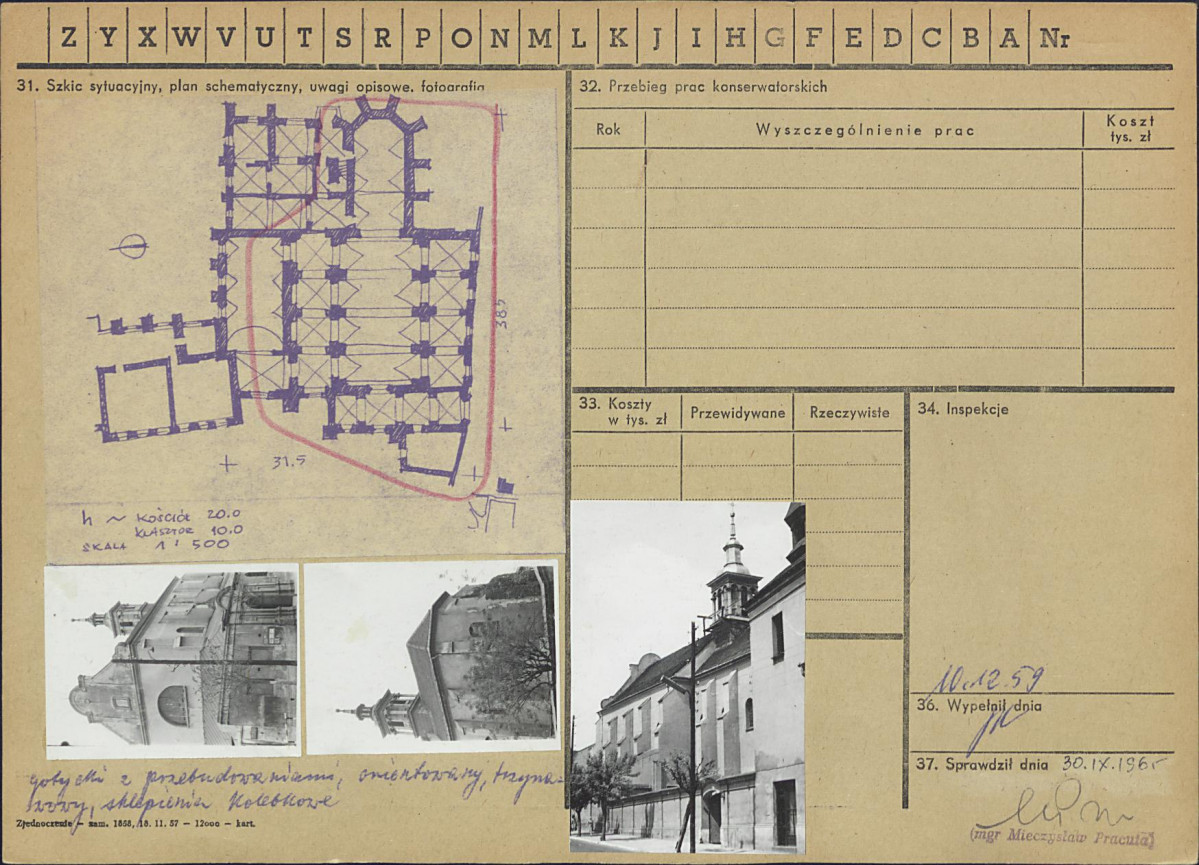 Z Y X W V U T S R P O N M L K J I H G F E D C B A Nr
31. Szkic sytuacyjny, plan schematyczny, uwagi opisowe, fotografia
38.5
31.5
h ~ KOŚCIÓŁ 20.0
KLASZTOR 10.0
SKALA 1 : 500
gotycki z przebudowaniami, orientowany, trzyna-
wowy, sklepienia kolebkowe
Zjednoczenie — zam. 1868, 18. 11. 57 — 12000 — kart.
32. Przebieg prac konserwatorskich
Rok Wyszczególnienie prac Koszt
tys. zł
33. Koszty
w tys. zł
Przewidywane Rzeczywiste
34. Inspekcje
10.12.59
36. Wypełnił dnia
37. Sprawdził dnia 30.IX.1965
(mgr Mieczysław Pracuta)